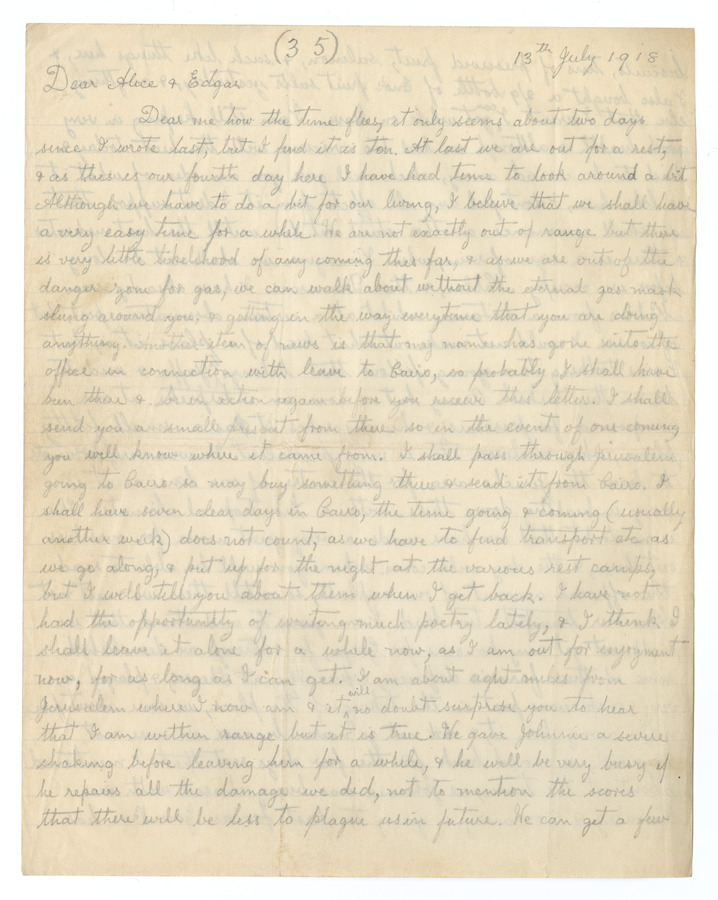 (35)
13th July 1918
Dear Alice & Edgar
Dear me how the time flies, it only seems about two days
since I wrote last, but I find it is ten. At last we are out for a rest,
& as this is our fourth day here I have had time to look around a bit
Although we have to do a bit for our living, I beleive that we shall have
a very easy time for a while. We are not exactly out of range but there
is very little likelihood of any coming this far, & as we are out of the
danger zone for gas, we can walk about without the eternal gas mask
slung around you, & getting in the way everytime that you are doing
anything. Another item of news is that my name has gone into the
office in connection with leave to Cairo, so probably I shall have
been there & be in action again before you receive this letter. I shall
send you a small present from there so in the event of one coming
you will know where it came from. I shall pass through Jerusalem
going to Cairo so may buy something there & send it from Cairo. I
shall have seven clear days in Cairo, the time going & coming (usually
another week) does not count, as we have to find transport etc as
we go along, & put up for the night at the various rest camps,
but I will tell you about them when I get back. I have not
had the opportunity of writing much poetry lately, & I think I
shall leave it alone for a while now, as I am out for enjoyment
now, for as long as I can get. I am about eight miles from
Jerusalem where I now am & it will no doubt surprise you to hear
that I am within range but it is true. We gave Johnnie a severe
shaking before leaving him for a while, & he will be very busy if
he repairs all the damage we did, not to mention the scores
that there will be less to plague us in future. We can get a few